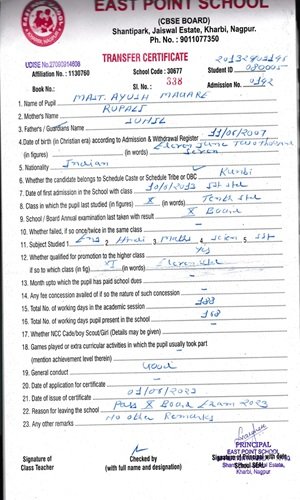 EAST POINT SCHOOL
(CBSE BOARD)
Shantipark, Jaiswal Estate, Kharbi, Nagpur.
Ph. No. : 9011077350
UDISE No.27090914808
TRANSFER CERTIFICATE
Affiliation No. : 1130760 School Code : 30677 Student ID 080005
Book No.: Sl. No.: 338 Admission No. 0142
1. Name of Pupil MAST. AYUSH
2. Mother's Name RUPALI
3. Fathers / Guardians Name SUHIL
4. Date of birth (in Christian era) according to Admission & Withdrawal Register 11/06/2007
(in figures) (in words) Eleven June Two thousand Seven
5. Nationality Indian
6. Whether the candidate belongs to Schedule Caste or Schedule Tribe or OBC Kunbi
7. Date of first admission in the School with class 1st std
8. Class in which the pupil last studied (in figures) X (in words) Tenth std
9. School / Board Annual examination last taken with result X Board
10. Whether failed, if so once/twice in the same class
11. Subject Studied 1. Eng 2. Hindi 3. Maths 4. Scien 5. SST
12. Whether qualified for promotion to the higher class Yes
if so to which class (in fig) XI (in words)
13. Month upto which the pupil has paid school dues
14. Any fee concession availed of if so the nature of such concession
15. Total No. of working days in the academic session 188
16. Total No. of working days pupil present in the school 168
17. Whether NCC Cade/boy Scout/Girl (Details may be given)
18. Games played or extra curricular activities in which the pupil usually took part
(mention achievement level therein)
19. General conduct Good
20. Date of application for certificate
21. Date of issue of certificate 01/06/2023
22. Reason for leaving the school Pass X Board Exam 2023
23. Any other remarks No other Remarks
PRINCIPAL
EAST POINT SCHOOL
Kharbi, Nagpur.
Signature of
Class Teacher
Checked by
(with full name and designation)
Signature of Principal with date
School SEAL